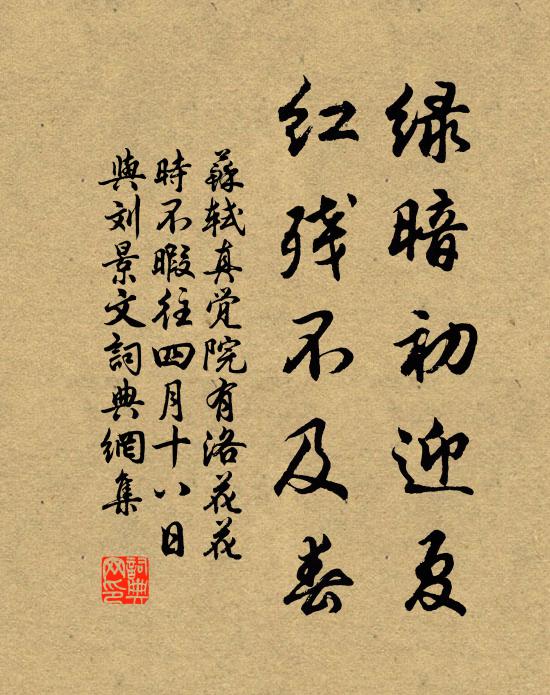 绿暗初迎夏
红残不及春
蘇轼真觉院有洛花花
時不暇往四月十八日
與刘景文詞典網集
詞典网印